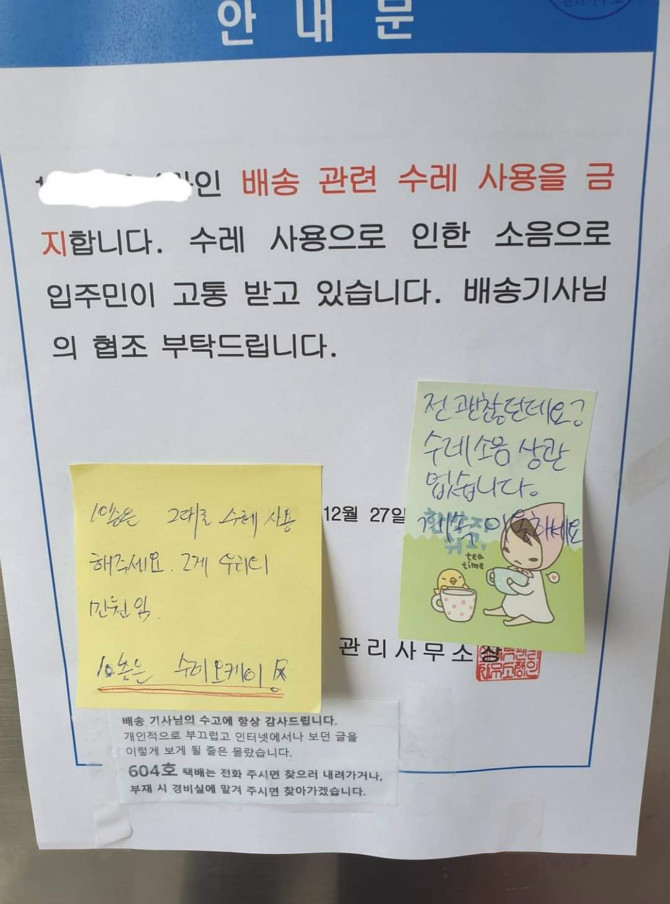 안내문
인 배송 관련 수레 사용을 금
지합니다. 수레 사용으로 인한 소음으로
입주민이 고통 받고 있습니다. 배송기사님
의 협조 부탁드립니다.
전 괜찮던데요?
수레소음 상관
없습니다.
계속 이용하세요
tea
time
12월 27일
그대로 수레 사용
해주세요. 그게 우리의
민원임.
수레 오케이
관리사무소장
배송 기사님의 수고에 항상 감사드립니다.
개인적으로 부끄럽고 인터넷에서나 보던 글을
이렇게 보게 될 줄은 몰랐습니다.
604호 택배는 전화 주시면 찾으러 내려가거나,
부재 시 경비실에 맡겨 주시면 찾아가겠습니다.